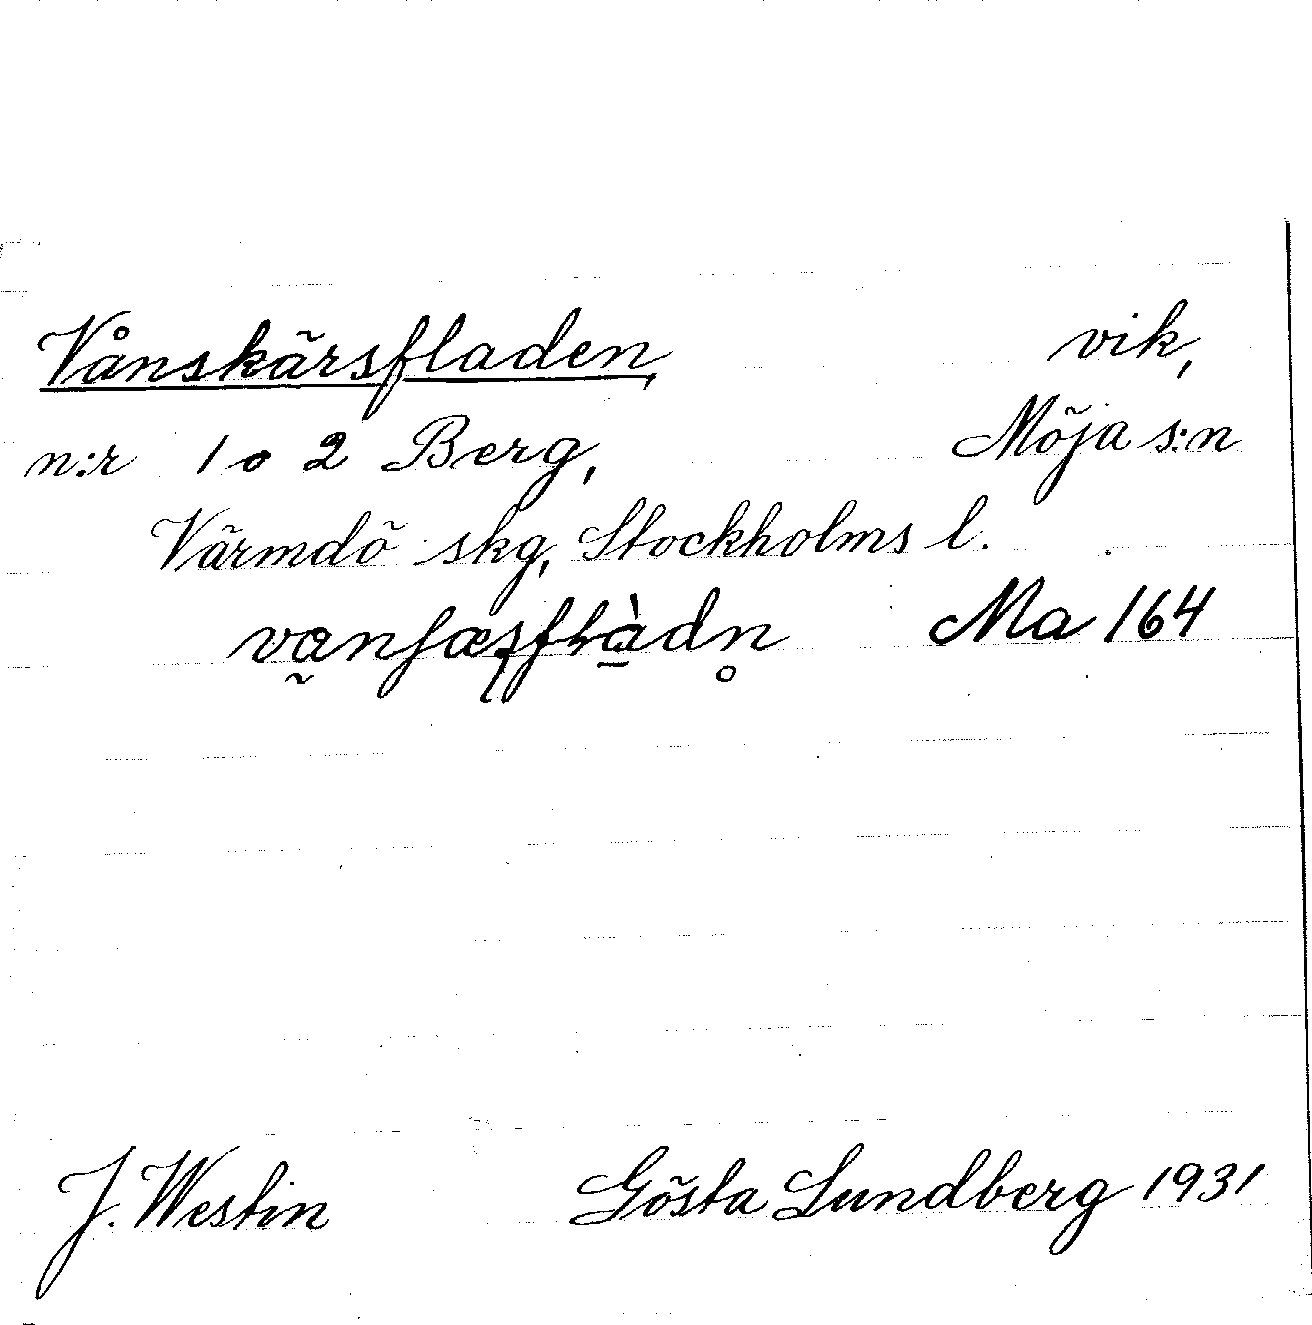 Vånskärsfladen, vik,
n:r 1 o 2 Berg, Möja s:n
Värmdö skg, Stockholms l.
Ma 164
J. Westin Gösta Lundberg 1931